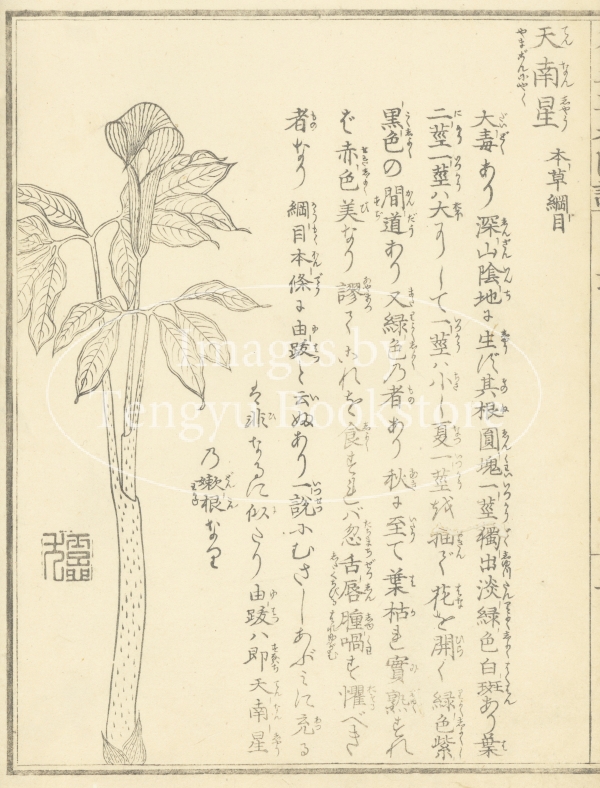 天南星 本草綱目
やまごんにやく
大毒あり深山陰地に生ず其根圓塊一莖獨出淡緑色白斑あり葉
二莖一莖ハ大にして一莖ハ小し夏一莖を抽で花を開く緑色紫
黒色の間道あり又緑色乃者あり秋に至て葉枯れ實熟すれ
ば赤色美なり謬てこれを食すれバ忽舌唇腫喎す懼べき
者なり綱目本條に由跋と云あり一説にむさしあぶみに充る
は非なるに似たり由跋ハ即天南星
乃嫩根なり
Images by
Tengyu Bookstore